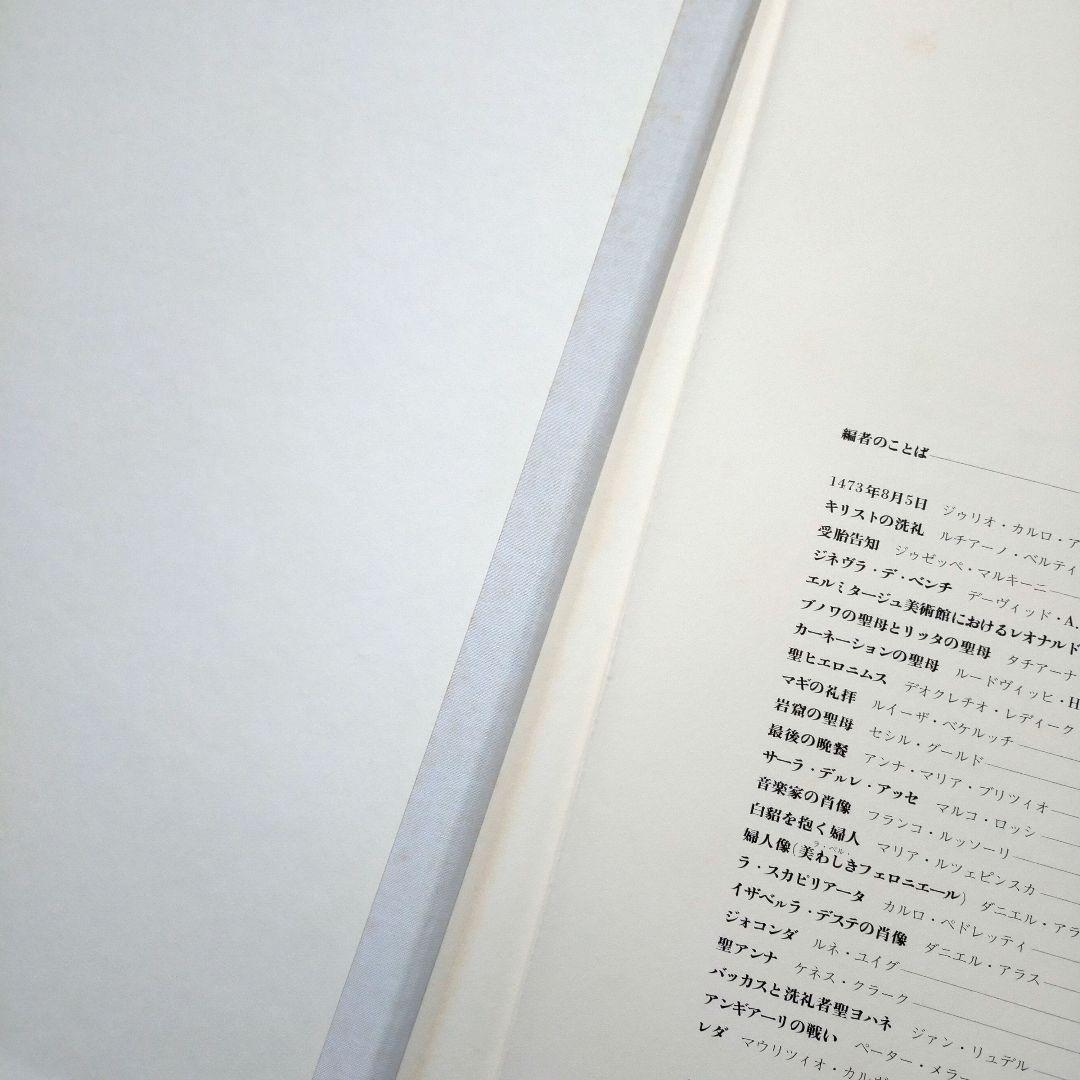 編者のことば
1473年8月5日 ジゥリオ・カルロ・ア
キリストの洗礼 ルチアーノ・ベルティ
受胎告知 ジゥゼッペ・マルキーニ
ジネヴラ・デ・ベンチ デーヴィッド・A.
エルミタージュ美術館におけるレオナルド
ブノワの聖母とリッタの聖母 タチアーナ
カーネーションの聖母 ルードヴィッヒ・H
聖ヒエロニムス デオクレチオ・レディーク
マギの礼拝 ルイーザ・ベケルッチ
岩窟の聖母 セシル・グールド
最後の晩餐 アンナ・マリア・ブリツィオ
サーラ・デルレ・アッセ マルコ・ロッシ
音楽家の肖像 フランコ・ルッソーリ
白貂を抱く婦人 マリア・ルツェピンスカ
婦人像(美わしきフェロニエール) ダニエル・アラ
ラ・ベル・
ラ・スカピリアータ カルロ・ペドレッティ
イザベルラ・デステの肖像 ダニエル・アラス
ジォコンダ ルネ・ユイグ
聖アンナ ケネス・クラーク
バッカスと洗礼者聖ヨハネ ジァン・リュデル
アンギアーリの戦い ペーター・メラー
レダ マウリツィオ・カル